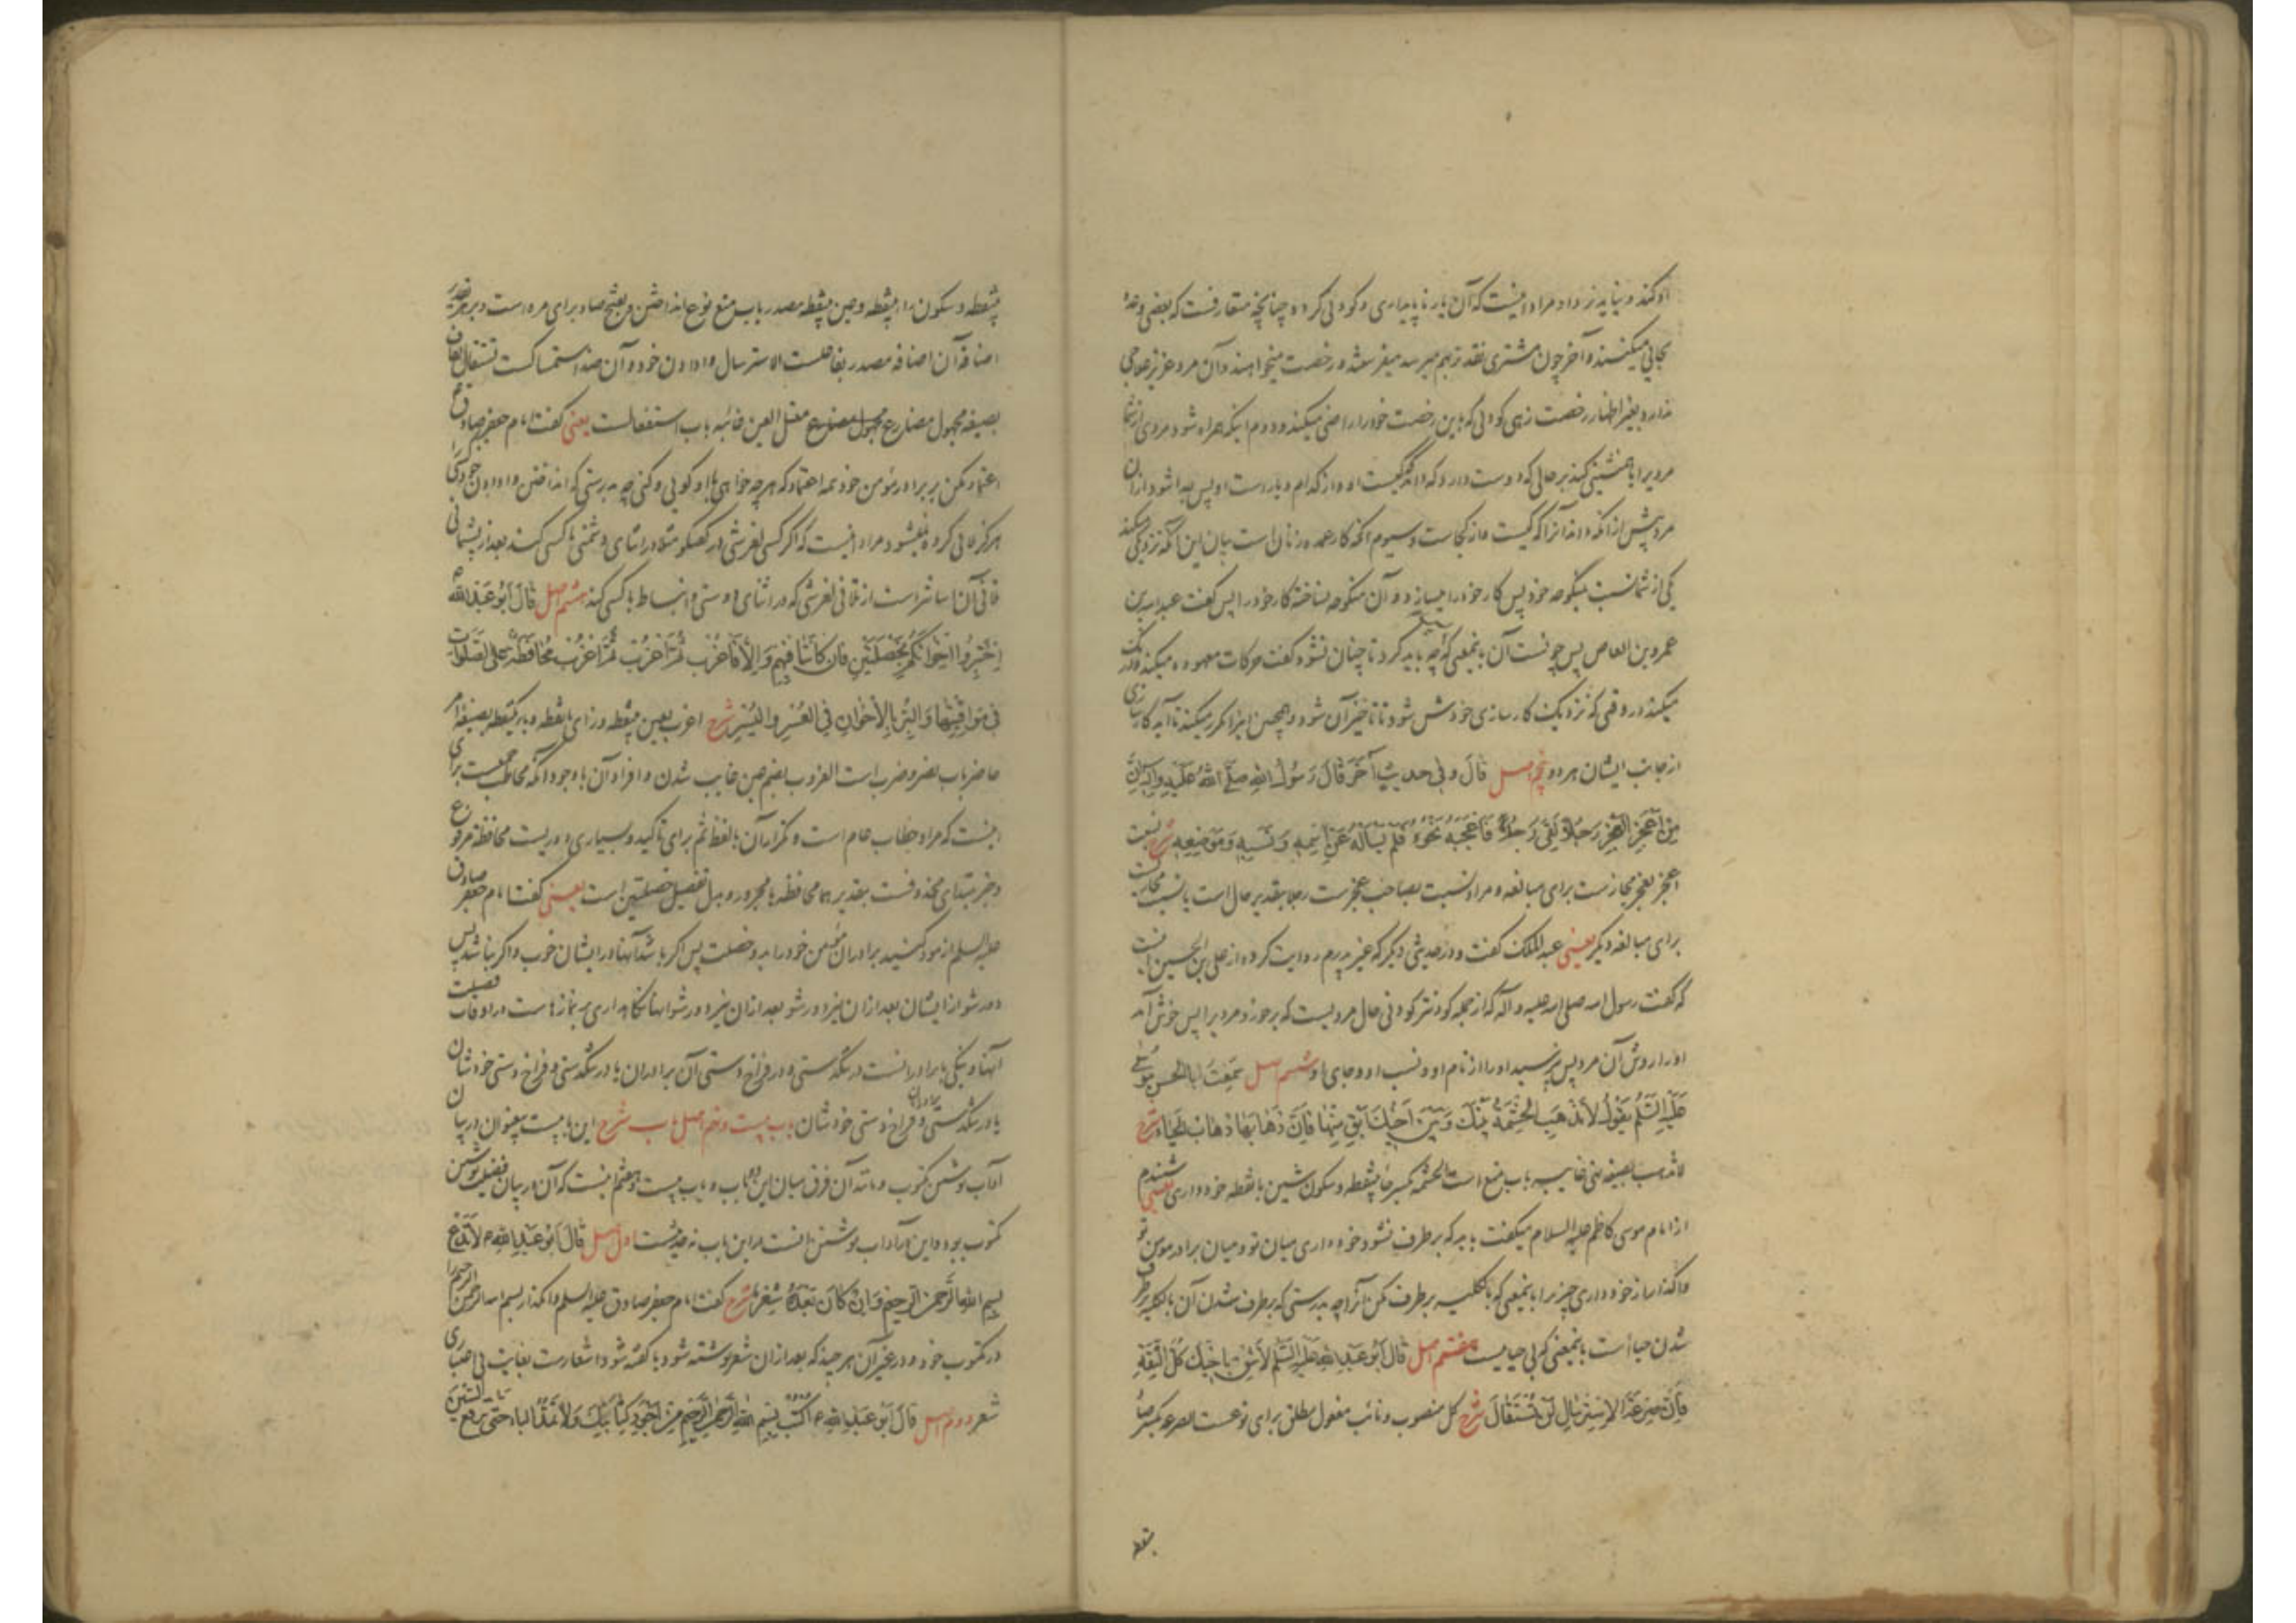 او کند و نیاید نزد او مراد اینست که آن یار ناپایداری و کودنی کرده چنانچه متعارفست که بعضی وعدهٔ
بجایی میکنند و آخر چون مشتری نقد بهم میرسد میفرستند و رخصت میخواهند و آن مرد عزیز علاجی
ندارد بغیر اظهار رخصت زهی کودنی که باین رخصت خود را راضی میکند و دوم اینکه همراه شود مردی از شما
مردیرا یا همنشینی کند بر حالی که دوست دارد که داند که کیست او و از کدام دیار است او پس جدا شود از آن
مرد پیش از آنکه داند آنرا که کیست و از کجاست و سیوم آنکه کار عمده زنان است بیان این آنکه نزدیکی میکند
یکی از شما نسبت بمنکوحه خود پس کار خود را میسازد و آن منکوحه نساخته کار خود را پس گفت عبدالله بن
عمرو بن العاص پس چونست آن بمعنی که چه باید کرد تا چنان نشود گفت حرکات معهوده میکند و درنگ
میکند در وقتی که نزدیک کارسازی خودش شود تا تاخیر آن شود و همچنین اینرا مکرر میکند تا آید کارسازی
از جانب ایشان هر دو پنجم اصل قَالَ وَفِي حَدِيثٍ آخَرَ قَالَ رَسُولُ اللهِ صَلَّى اللهُ عَلَيْهِ وَآلِهِ إِنَّ
مِنْ أَعْجَزِ الْعَجْزِ رَجُلًا لَقِيَ رَجُلًا فَأَعْجَبَهُ نَحْوُهُ فَلَمْ يَسْأَلْهُ عَنِ اسْمِهِ وَنَسَبِهِ وَمَوْضِعِهِ شرح نسبت
اعجز بعجز مجازست برای مبالغه و مراد نسبت بصاحب عجزست رجلا بتقدیر حال است یا نسبت مجازیست
برای مبالغه دیگر یعنی عبدالملک گفت و در حدیثی دیگر که غیر پدرم روایت کرده از علی بن الحسین اینست
که گفت رسول الله صلی الله علیه و آله که از جمله کودنتر کودنی حال مردیست که برخورد مردیرا پس خوش آمد
او را روش آن مرد پس نپرسید او را از نام او و نسب او و جای او ششم اصل سَمِعْتُ أَبَا الْحَسَنِ مُوسَى
عَلَيْهِ السَّلَامُ يَقُولُ لَا تُذْهِبِ الْحِشْمَةَ بَيْنَكَ وَبَيْنَ أَخِيكَ أَبْقِ مِنْهَا فَإِنَّ ذَهَابَهَا ذَهَابُ الْحَيَاءِ شرح
لا تذهب بصیغه نهی باب منع است الحشمه بکسر حاء بینقطه و سکون شین با نقطه خودداری یعنی شنیدم
از امام موسی کاظم علیه السلام میگفت باید که برطرف نشود خودداری میان تو و میان برادر مومن تو
واگذار از خودداری چیزیرا بمعنی که بالکلیه برطرف مکن آنرا چه بدرستی که برطرف شدن آن بالکلیه برطرف
شدن حیاست بمعنی که بی حیاییست هفتم اصل قَالَ أَبُو عَبْدِ اللهِ عَلَيْهِ السَّلَامُ لَا تَثِقْ بِأَخِيكَ كُلَّ الثِّقَةِ
فَإِنَّ صَرْعَةَ الِاسْتِرْسَالِ لَنْ تُسْتَقَالَ شرح کل منصوب و نائب مفعول مطلق برای نوعست الصرعه بکسر صاد
بینقطه
بینقطه و سکون راء بینقطه و عین بینقطه مصدر باب منع نوع انداختن و بفتح صاد برای مره است و بر هر تقدیر
اضافه آن اضافه مصدر بفاعلست الاسترسال وادادن خود و آن ضد استمساکست تستقال بقاف
بصیغه مجهول مضارع معتل العین غائبه باب استفعالست یعنی گفت امام جعفر صادق ع
اعتماد مکن بر برادر مؤمن خود همه اعتماد که هر چه خواهی با او گویی و کنی چه بدرستی که انداختن وادادن خود کسی را
هرگز تلافی کرده نمیشود مراد اینست که اگر کسی لغزشی در گفتگو مثلا در اثنای دشمنی با کسی کند بعد از پشیمانی
تلافی آن آسانتر است از تلافی لغزشی که در اثنای دوستی و انبساط با کسی کند هشتم اصل قَالَ أَبُو عَبْدِ اللهِ ع
اِخْتَبِرُوا إِخْوَانَكُمْ بِخَصْلَتَيْنِ فَإِنْ كَانَتَا فِيهِمْ وَإِلَّا فَاعْزُبْ ثُمَّ اعْزُبْ ثُمَّ اعْزُبْ مُحَافَظَةٍ عَلَى الصَّلَوَاتِ
فِي مَوَاقِيتِهَا وَالْبِرِّ بِالْإِخْوَانِ فِي الْعُسْرِ وَالْيُسْرِ شرح اعزب بعین بینقطه و زای با نقطه و باء یکنقطه بصیغه امر
حاضر باب نصر و ضرب است العزوب بضم عین غایب شدن و افراد آن با وجود آنکه مخاطب جمعیست برای
اینست که مراد خطاب عام است و تکرار آن بلفظ ثم برای تاکید و بسیاری دوریست محافظه مرفوع
و خبر مبتدای محذوفست بتقدیر هما محافظه یا مجرور و بدل تفصیل خصلتین است یعنی گفت امام جعفر صادق
علیه السلم آزمود کنید برادران مؤمن خود را بدو خصلت پس اگر باشد آنها در ایشان خوب و اگر نباشد پس
دور شو از ایشان بعد از آن نیز دور شو بعد از آن نیز دور شو آنها نگاهداری بر نمازهاست در اوقات فضیلت
آنها و نیکی با برادرانست در تنگدستی و در فراخ دستی آن برادران یا در تنگدستی و فراخ دستی خودشان
یا در تنگدستی و فراخ دستی خودشان باب بیست و نهم اصل باب شرح این باب بیست و نهم در بیان
آداب نوشتن مکتوب و مانند آن فرق میان این باب و باب بیست و هفتم اینست که آن در بیان فضیلت نوشتن
مکتوب بود و این در آداب نوشتن آنست در این باب نه حدیثست اول اصل قَالَ أَبُو عَبْدِ اللهِ ع لَا تَدَعْ
بِسْمِ اللهِ الرَّحْمٰنِ الرَّحِيمِ وَإِنْ كَانَ بَعْدَهُ شِعْرٌ شرح گفت امام جعفر صادق علیه السلم وا مگذار بسم الله الرحمن الرحیم را
در مکتوب خود و در غیر آن هر چند که بعد از آن شعر نوشته شود یا گفته شود اشعارست بغایت بی اعتباری
شعر دوم اصل قَالَ أَبُو عَبْدِ اللهِ ع اُكْتُبْ بِسْمِ اللهِ الرَّحْمٰنِ الرَّحِيمِ مِنْ أَجْوَدِ كِتَابِكَ وَلَا تَمُدَّ الْبَاءَ حَتَّى تَرْفَعَ السِّينَ